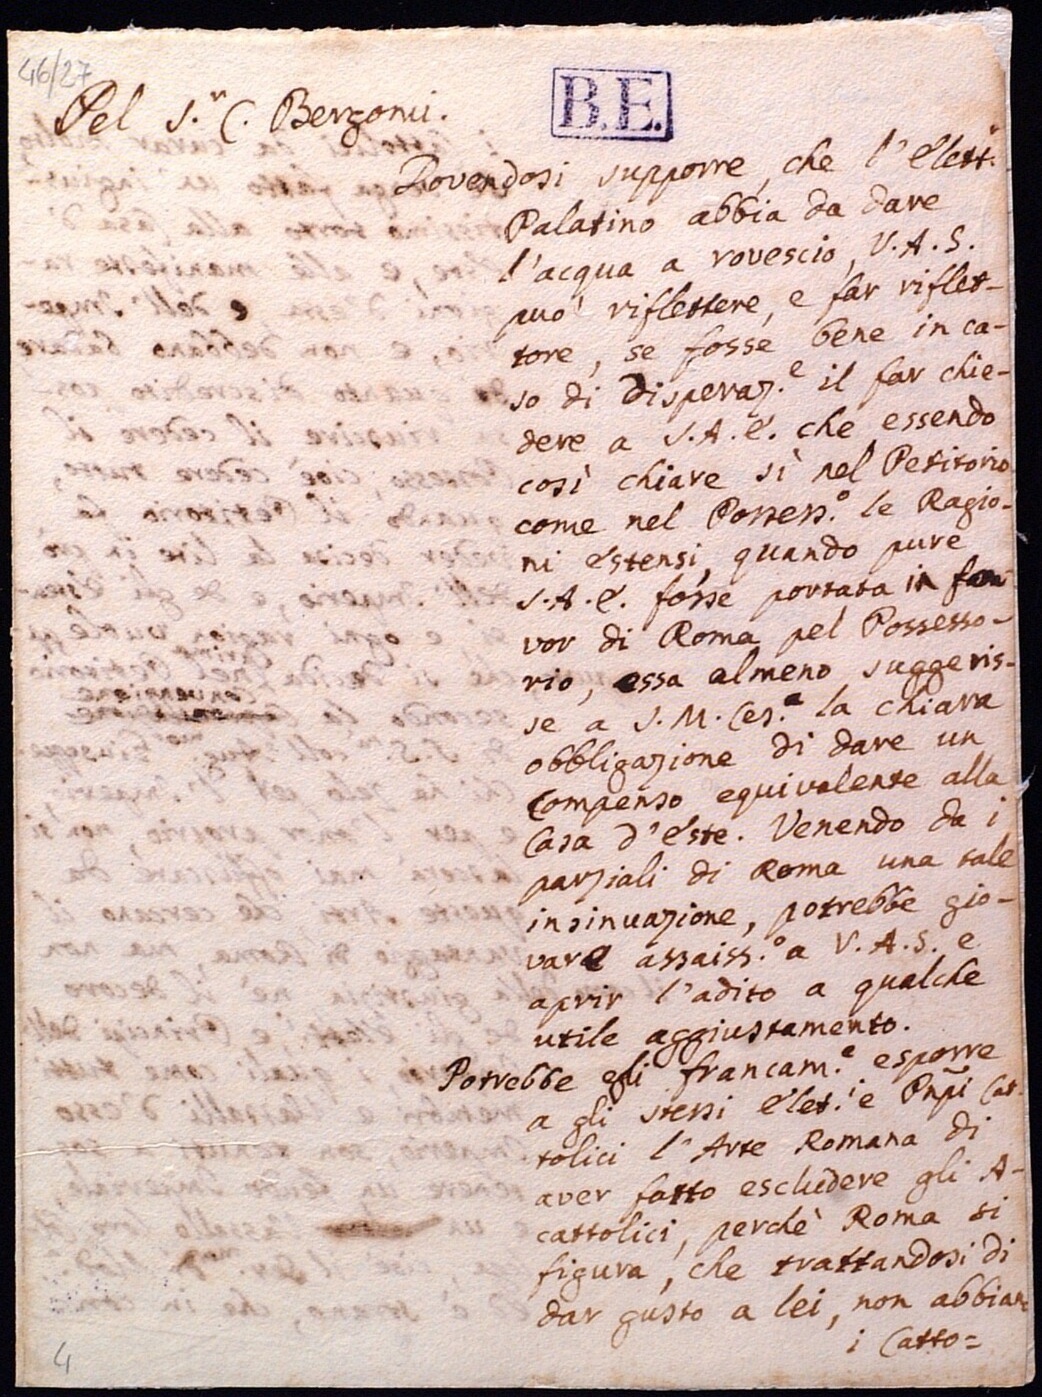 46/27
Pel S.r C. Bergomi.
B.E.
Dovendosi supporre, che l'Elett.r
Palatino abbia da dare
l'acqua a rovescio, V.A.S.
può riflettere, e far riflet-
tere, se fosse bene in ca-
so di disperaz.e il far chie-
dere a S.A.E. che essendo
così chiare sì nel Petitorio
come nel Possess.o le Ragio-
ni Estensi, quando pure
S.A.E. fosse portata in fa-
vor di Roma pel Possesso-
rio, essa almeno suggeris-
se a S.M. Ces.a la chiara
obbligazione di dare un
compenso equivalente alla
Casa d'Este. Venendo da i
parziali di Roma una tale
insinuazione, potrebbe gio-
vare assaiss.o a V.A.S. e
aprir l'adito a qualche
utile aggiustamento.
Potrebbe egli francam.e esporre
a gli stessi Elet.i e Pnpi Cat-
tolici l'Arte Romana di
aver fatto escludere gli A-
cattolici, perchè Roma si
figura, che trattandosi di
dar gusto a lei, non abbiano
i Catto=
4